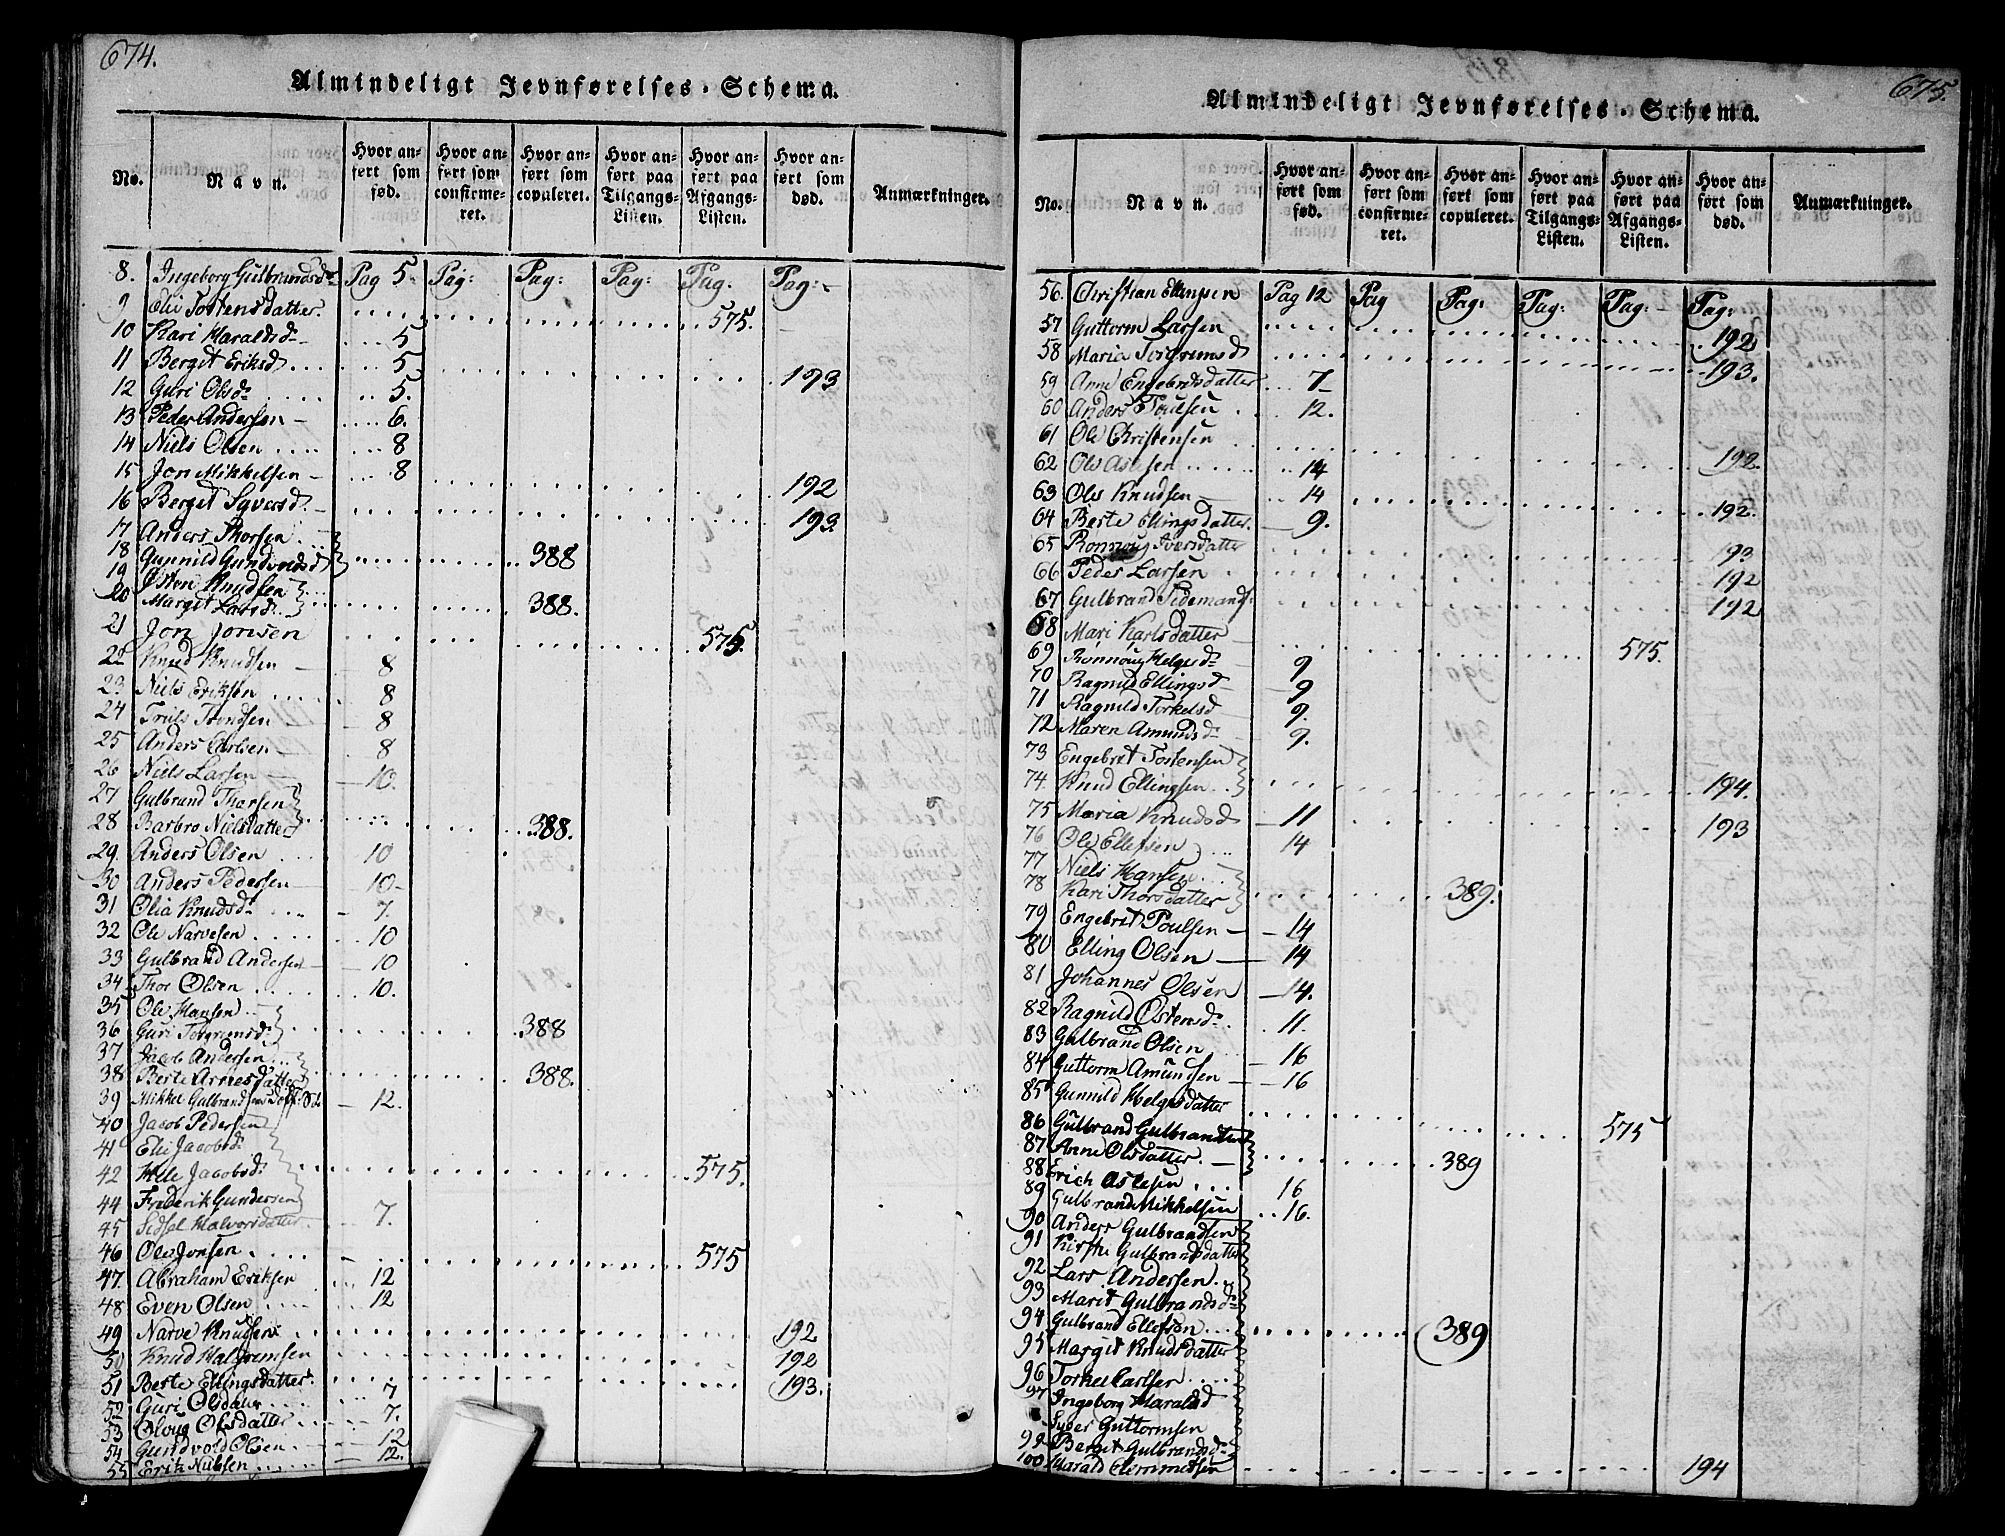 674.
Almindeligt Jevnførelses-Schema.
No. Navn. Hvor anført som fød. Hvor anført som confirmeret. Hvor anført som copuleret. Hvor anført paa Tilgangs-Listen. Hvor anført paa Afgangs-Listen. Hvor anført som død. Anmærkninger.
8. Ingeborg Gulbrandsd: Pag 5. Pag: Pag: Pag: Pag. Pag:
9 Eli Tostensdatter. 575.
10 Kari Haraldsd: 5
11 Bergit Eriksd 5 193
12 Guri Olsd: 5.
13 Peder Andersen 6.
14 Niels Olsen 8
15 Jon Mikkelsen 8
16 Bergit Syversd 192
17 Anders Thorsen 193
18 Gunnild Gundvoldsd 388
19 Østen Knudsen
20 Margit Larsd. 388.
21 Jon Jonsen 575.
22 Knud Knudsen 8
23 Niels Eriksen 8
24 Truls Trondsen 8
25 Anders Carlsen 8
26 Niels Larsen 10.
27 Gulbrand Thorsen
28 Barbro Nielsdatter 388.
29. Anders Olsen 10
30 Anders Pedersen 10
31 Olia Knudsd: 7.
32 Ole Narvesen 10
33 Gulbrand Andersen 10
34 Thor Olsen 10.
35 Ole Hansen
36 Guri Torgrimsd: 388
37 Jacob Andersen
38 Berte Arnesdatter 388.
39 Mikkel Gulbrandsen 12.
40 Jacob Pedersen
41 Eli Jacobsd:
42 Helle Jacobsd: 575.
44 Frederik Gundersen
45 Sidsel Halvorsdatter 7.
46 Ole Jonsen 575
47. Abraham Eriksen 12
48 Even Olsen 12
49 Narve Knudsen 192
50 Knud Halgrimsen 192
51 Berte Ellingsdatter 193.
52 Guri Olsdatter 7
53 Oloug Olsdatter 7.
54 Gundvold Olsen 12
55 Erik Nubsen 12.
675.
Almindeligt Jevnførelses-Schema.
No. Navn. Hvor anført som fød. Hvor anført som confirmeret. Hvor anført som copuleret. Hvor anført paa Tilgangs-Listen. Hvor anført paa Afgangs-Listen. Hvor anført som død. Anmærkninger.
56. Christian Ellingsen Pag 12 Pag Pag: Pag: Pag: Pag:
57 Guttorm Larsen 192
58 Maria Torgrimsd 193.
59 Anne Engebretsdatter 7
60 Anders Poulsen 12.
61 Ole Christensen 192.
62 Ole Aslesen 14
63 Ole Knudsen 14
64 Berte Ellingsdatter 9. 192.
65 Ronnoug Iversdatter 193
66 Peder Larsen 192
67 Gulbrand Tidemands. 192
68 Mari Karlsdatter 575.
69 Ronnoug Helgesd: 9
70 Ragnild Ellingsd 9
71 Ragnild Torkelsd 9.
72 Maren Amundsd: 9.
73 Engebret Tostensen
74. Knud Ellingsen 194.
75 Maria Knudsd 11 193
76 Ole Ellefsen 14
77 Niels Hansen
78 Kari Thorsdatter 389.
79 Engebret Poulsen 14
80 Elling Olsen 14
81 Johannes Olsen 14.
82 Ragnild Ostensd: 11.
83 Gulbrand Olsen 16
84 Guttorm Amundsen 16
85 Gunnild Helgesdatter 575
86 Gulbrand Gulbrandsen
87 Anne Olsdatter 389
88 Erich Aslesen 16
89 Gulbrand Mikkelsen 16.
90 Anders Gulbrandsen
91 Kirsti Gulbrandsdatter
92 Lars Andersen
93 Marit Gulbrandsd:
94 Gulbrand Ellefsen 389
95 Margit Knudsdatter
96 Torkel Carlsen
97 Ingeborg Haralsd
Syver Guttormsen
99 Bergit Gulbrandsd:
100 Harald Clemmetsen 194